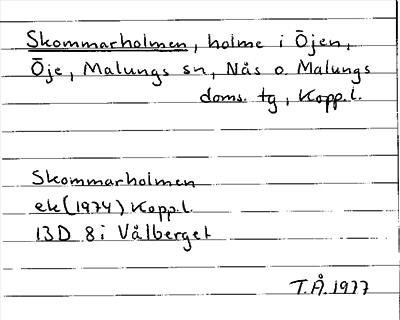 Skommarholmen, holme i Öjen,
Öje, Malungs sn, Nås o. Malungs
doms. tg, Kopp.l.
Skommarholmen
ek (1974) Kopp.l.
13D 8i Vålberget
T.Å. 1977